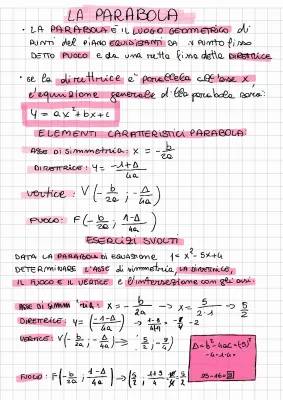 LA PARABOLA
• LA PARABOLA È IL LUOGO GEOMETRICO di
PUNTI del PIANO EQUIDISTANTI DA 1 PUNTO fisso
DETTO FUOCO e da una retta fissa detta DIRETTRICE
• se la direttrice è parallela all'asse x
l'equazione generale della parabola sarà:
y = ax²+bx+c
ELEMENTI CARATTERISTICI PARABOLA
ASSE DI SIMMETRIA: x = -b/2a
DIRETTRICE: y = -1+Δ/4a
VERTICE: V(-b/2a ; -Δ/4a)
FUOCO: F(-b/2a ; 1-Δ/4a)
ESERCIZI SVOLTI
DATA LA PARABOLA DI EQUAZIONE y = x²-5x+4
DETERMINARE L'ASSE di simmetria, LA DIRETTRICE,
IL FUOCO E IL VERTICE e l'intersezione con gli assi.
x = -b/2a → x = 5/2·1 → 5/2
DIRETTRICE: y =
VERTICE: V(-b/2a ; -Δ/4a) → (5/2 ; -9/4)
Δ = b²-4ac = (-5)²
-4·1·4 =
25-16 = 9
FUOCO: F(-b/2a ; 1-Δ/4a) →